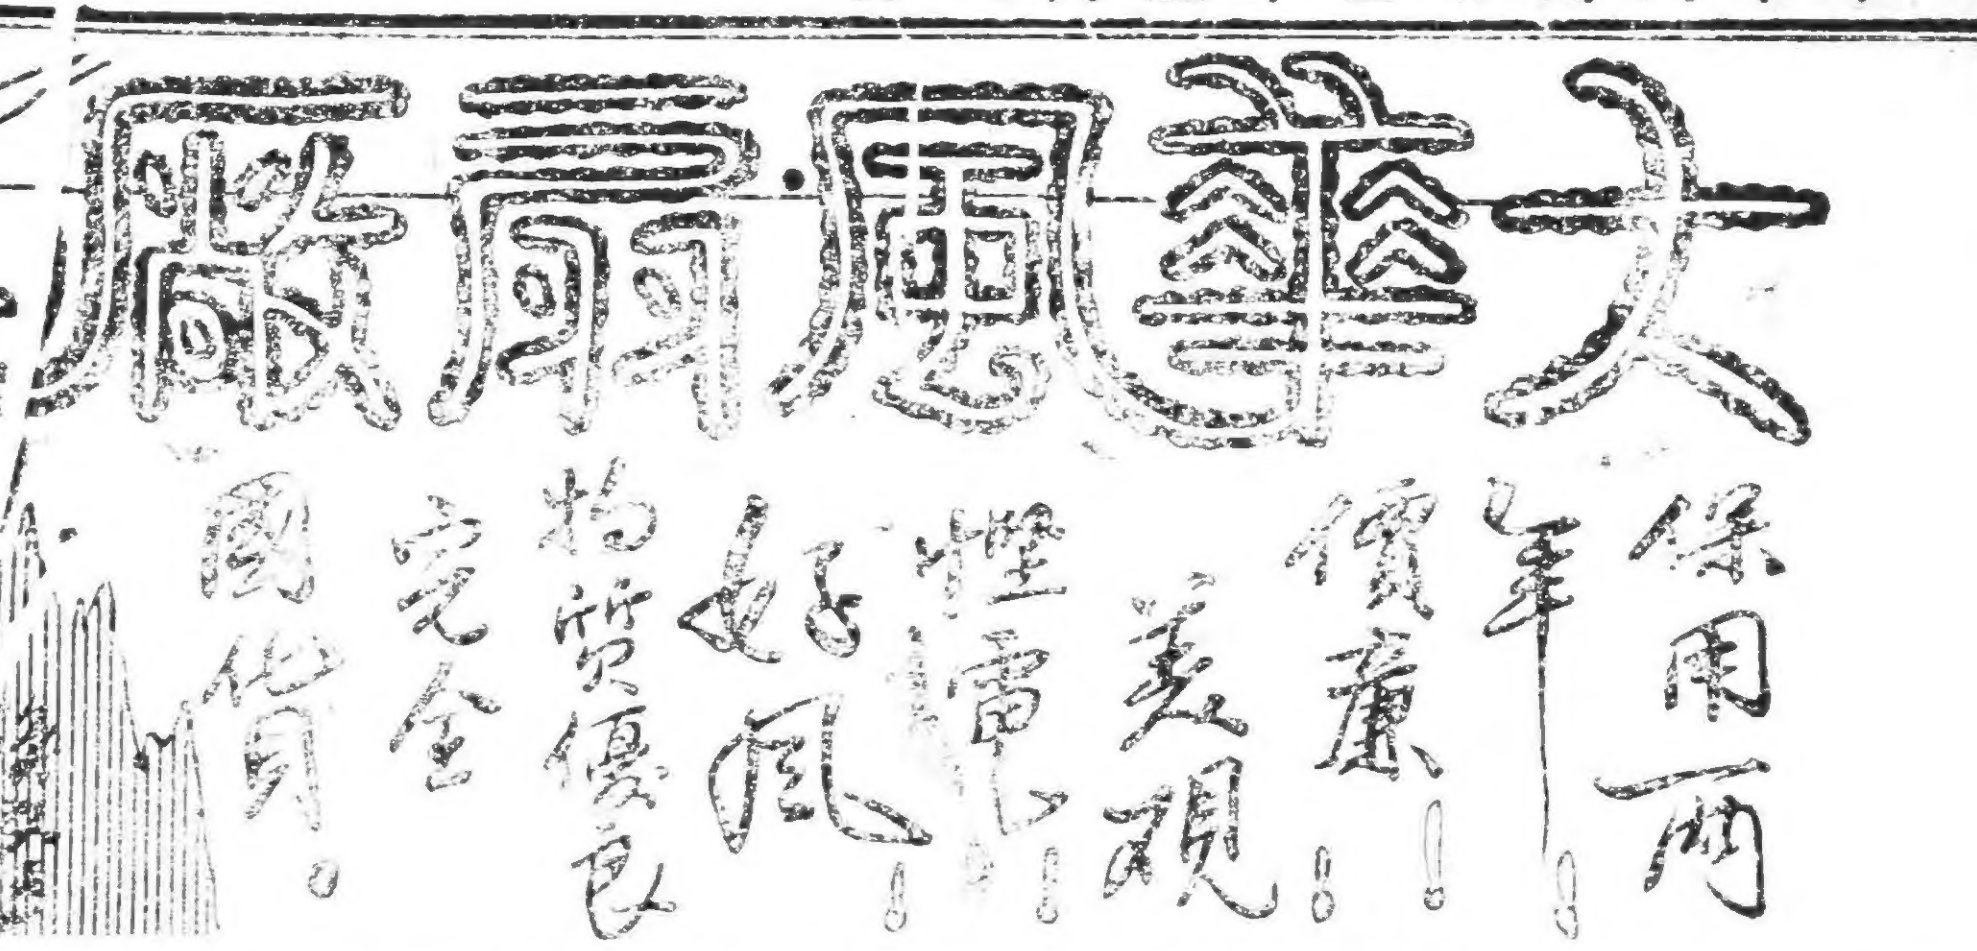 大華風扇廠
保用兩
年！
價廉！
美觀！
慳電！
好風！
物質優良
完全
國貨。